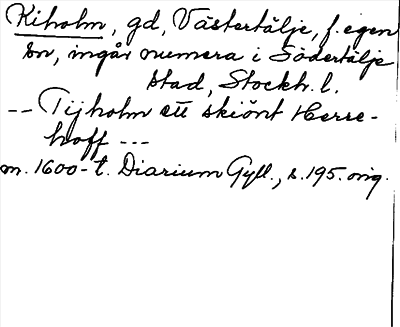 Kiholm, gd, Västertälje, f. egen
sn, ingår numera i Södertälje
stad, Stockh. l.
-- Tijholm ett skiönt Herre-
hoff ---
m. 1600-t. Diarium Gyll., s. 195. orig.